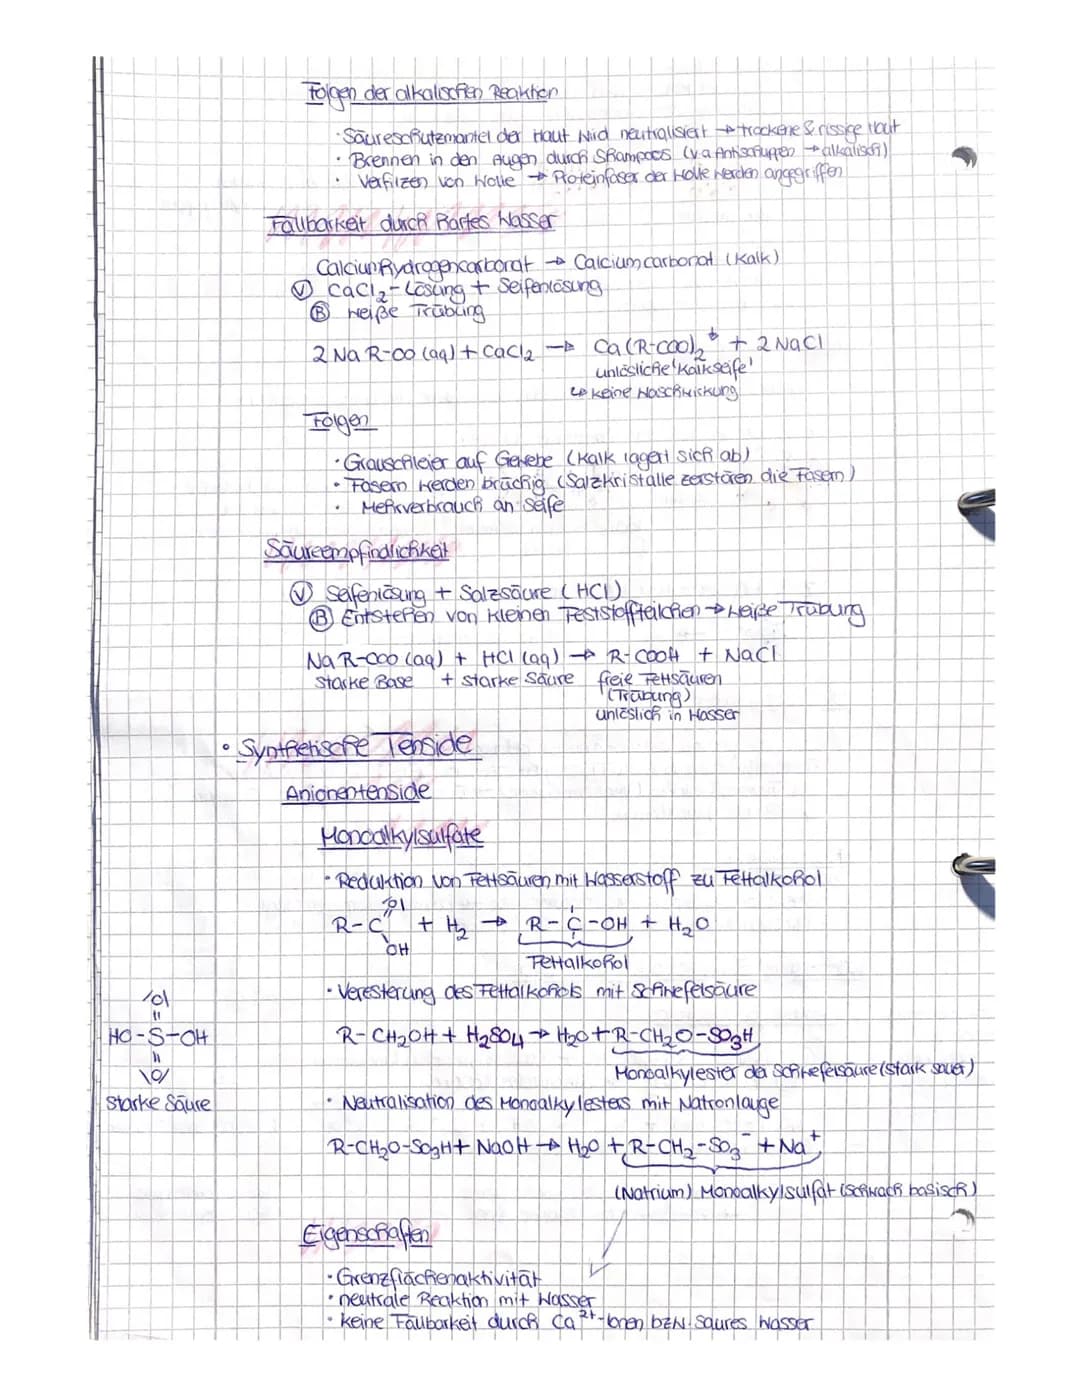 Folgen der alkalischen Reaktion
· Säureschutzmantel der Haut wird neutralisiert → trockene & rissige Haut
· Brennen in den Augen durch Shampoos (v.a Antischuppen → alkalisch)
· Verfilzen von Wolle → Proteinfaser der Wolle werden angegriffen
Fällbarkeit durch hartes Wasser
Calciumhydrogencarbonat → Calciumcarbonat (Kalk)
Ⓥ CaCl₂-Lösung + Seifenlösung
Ⓑ weiße Trübung
2 Na R-OO (aq) + CaCl₂ → Ca(R-COO)₂↓ + 2 NaCl
unlösliche 'Kalkseife'
↳ keine Waschwirkung
Folgen
· Grauschleier auf Gewebe (Kalk lagert sich ab)
· Fasern werden brüchig (Salzkristalle zerstören die Fasern)
· Mehrverbrauch an Seife
Säureempfindlichkeit
Ⓥ Seifenlösung + Salzsäure (HCl)
Ⓑ Entstehen von kleinen Feststoffteilchen → weiße Trübung
Na R-COO (aq) + HCl (aq) → R-COOH + NaCl
starke Base + starke Säure freie Fettsäuren
(Trübung)
unlöslich in Wasser
• Synthetische Tenside
Anionentenside
Monoalkylsulfate
· Reduktion von Fettsäuren mit Wasserstoff zu Fettalkohol
|O|
R-C + H₂ → R-C-OH + H₂O
OH
Fettalkohol
· Veresterung des Fettalkohols mit Schwefelsäure
|O|
HO-S-OH
|O|
starke Säure
R-CH₂OH + H₂SO₄ → H₂O + R-CH₂O-SO₃H
Monoalkylester der Schwefelsäure (stark sauer)
· Neutralisation des Monoalkylesters mit Natronlauge
R-CH₂O-SO₃H + NaOH → H₂O + R-CH₂-SO₃⁻ + Na⁺
(Natrium) Monoalkylsulfat (schwach basisch)
Eigenschaften
· Grenzflächenaktivität
· neutrale Reaktion mit Wasser
· keine Fällbarkeit durch Ca²⁺-Ionen bzw. saures Wasser